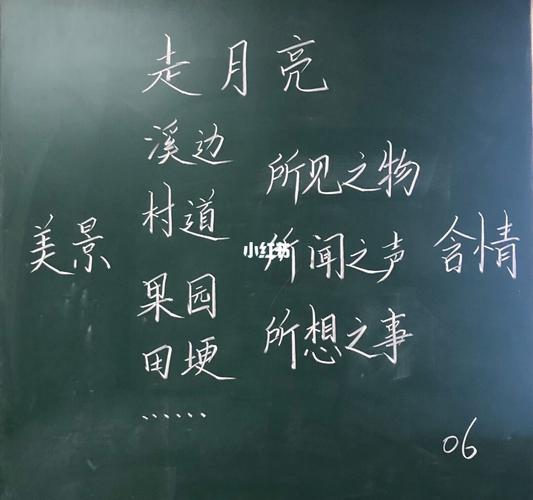 走月亮
溪边
村道
果园
田埂
……
美景
所见之物
所闻之声
所想之事
含情
小红书
06